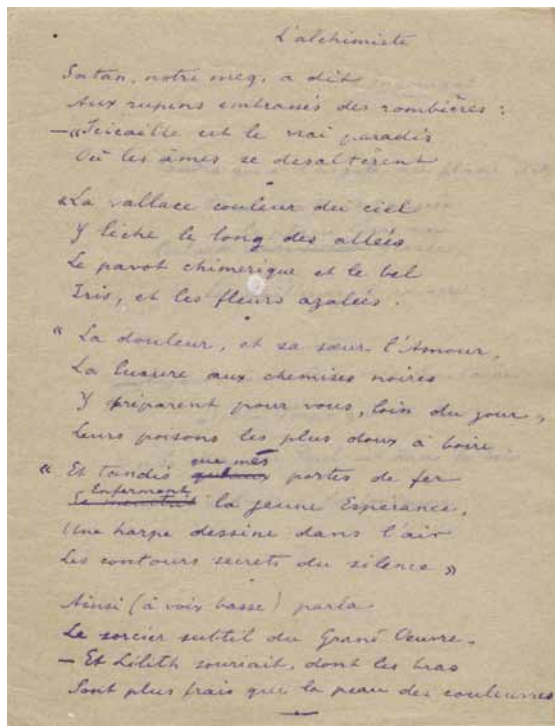 L'alchimiste
Satan, notre meg, a dit
Aux rupins embrasés des rombières :
— "Icicaille est le vrai paradis
Où les âmes se désaltèrent
"La vallace couleur du ciel
Y lèche le long des allées
Le pavot chimérique et le bel
Iris, et les fleurs azalées.
" La douleur, et sa sœur l'Amour,
La luxure aux chemises noires
Y préparent pour vous, loin du jour,
Leurs poisons les plus doux à boire
que mes
" Et tandis portes de fer
Enferment
la jeune Espérance,
Une harpe dessine dans l'air
Les contours secrets du silence »
Ainsi (à voix basse) parla
Le sorcier subtil du Grand Oeuvre.
— Et Lilith souriait, dont les bras
Sont plus frais que la peau des couleuvres